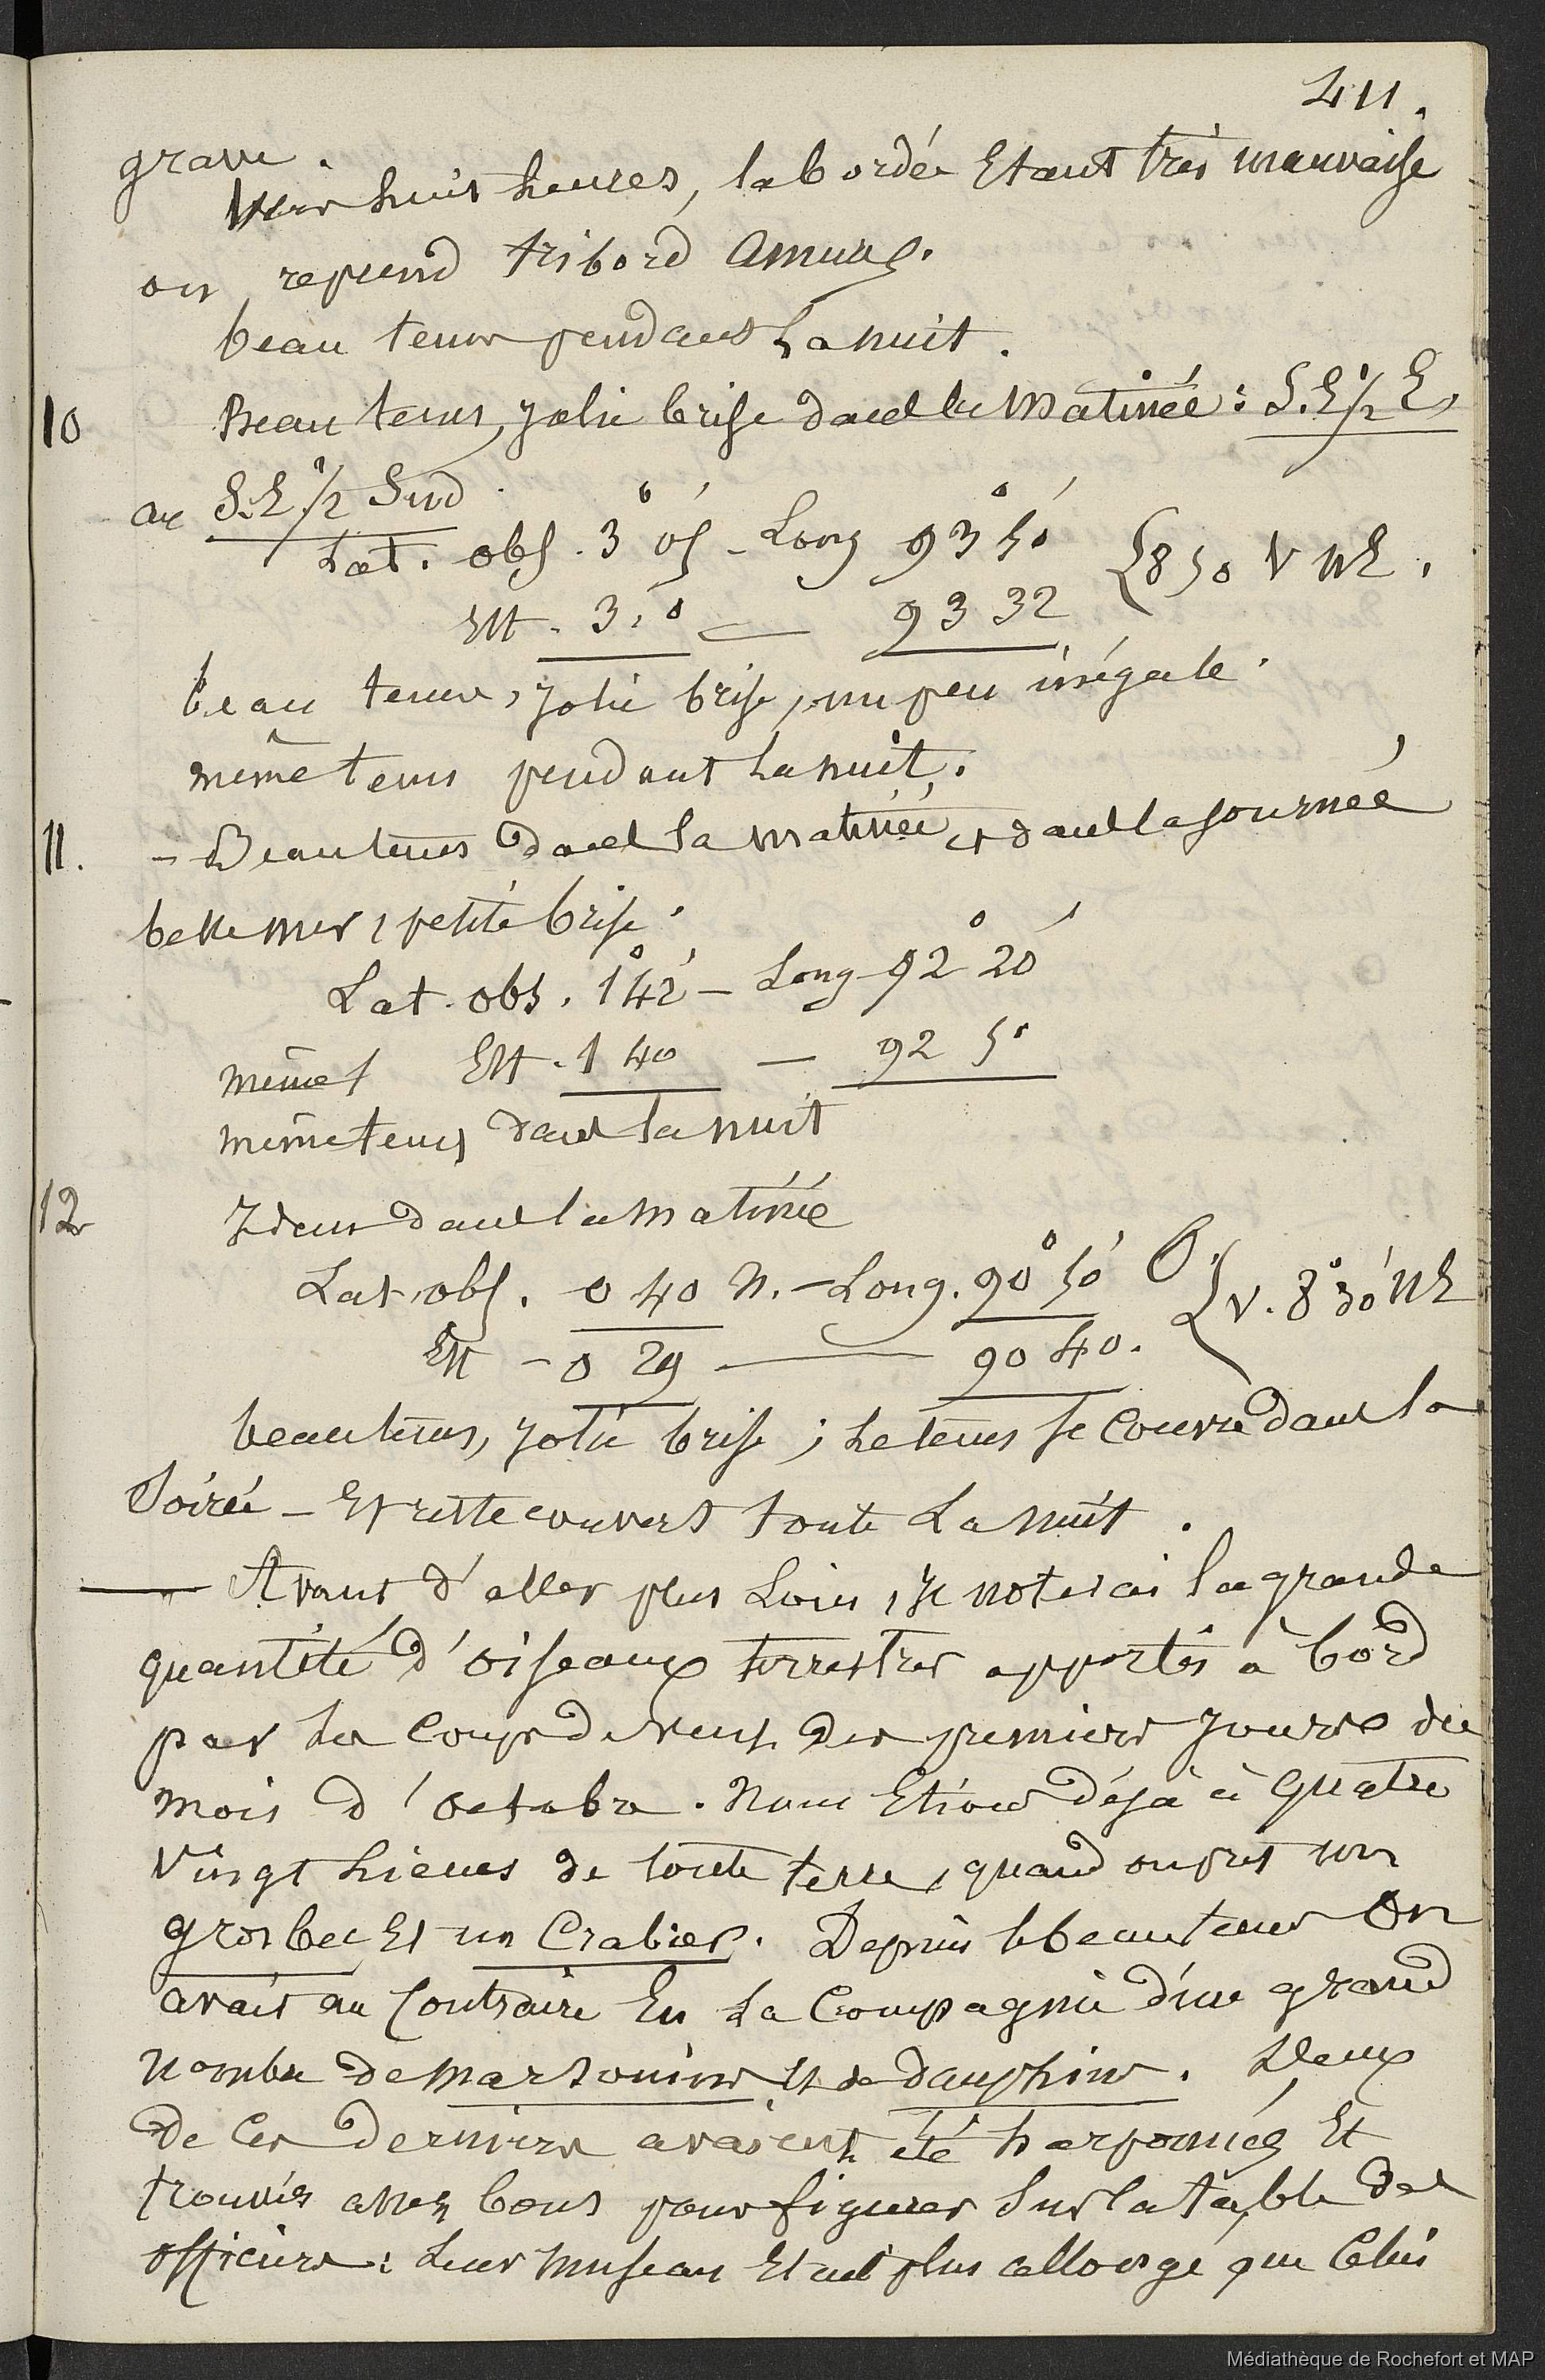 411.
grave.
Vers huit heures, la bordée Etant très mauvaise
on reprend tribord amures.
beau tems pendant La nuit.
10 Beau tems, jolie brise dans la Matinée : S.E 1/2 E,
au S.E 1/2 Sud
Lat. obs. 3° 05' - Long 93° 50' { 8 50 V NE.
Est. 3. 0 — 93 32
beau tems, jolie brise, un peu inégale.
même tems pendant La nuit.
11. - Beau tems dans la matinée et dans la journée
belle mer, petite brise.
Lat. obs. 1° 42' - Long 92° 20'
même t Est. 1 40 — 92 5
même tems dans la nuit
12 Idem dans la Matinée
Lat. obs. 0 40 N. - Long. 90° 50' O. { V. 8° 30' NE
Est - 0 29 — 90 40.
beau tems, jolie brise ; Le tems se Couvre dans la
Soirée - Et reste couvert toute La nuit.
— Avant d'aller plus Loin, je noterai la grande
quantité d'oiseaux terrestres apportés à bord
par les Coups de vent des premiers jours du
mois d'octobre. Nous Etions déjà à quatre
vingt Lieues de toute terre, quand on prit un
grosbec Et un Crabier. Depuis le beau tems on
avait au Contraire Eu La Compagnie d'un grand
nombre de marsouins et de dauphins. Deux
de Ces derniers avaient été harponnés Et
trouvés assez bons pour figurer Sur la table des
officiers : Leur museau Etait plus allongé que Celui
Médiathèque de Rochefort et MAP